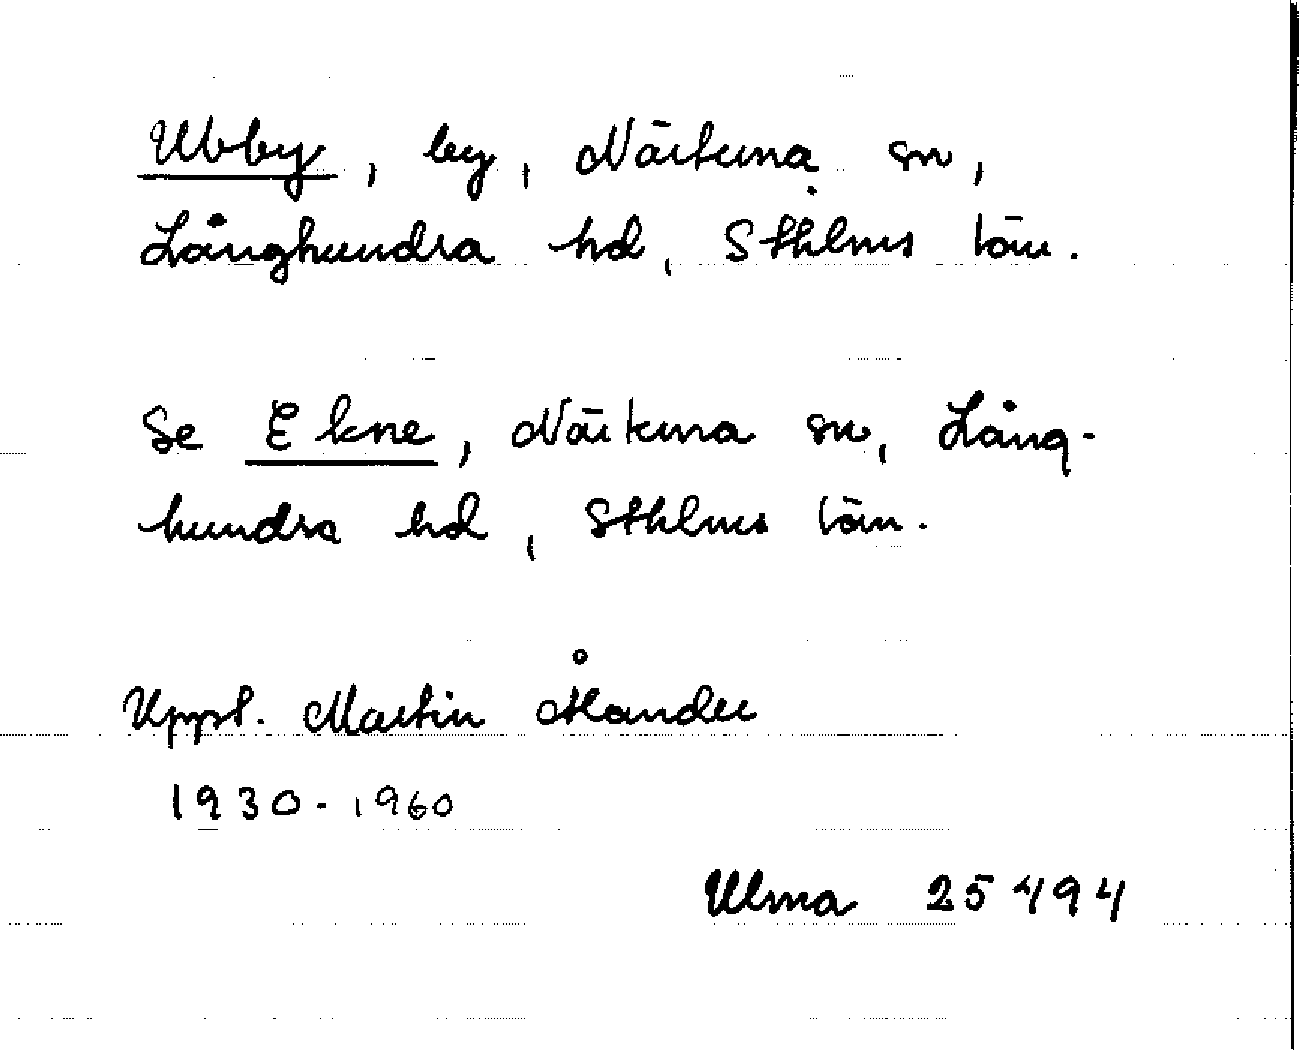 Ubby, by, Närtuna sn,
Långhundra hd, Sthlms län.
Se Ekne, Närtuna sn, Lång-
hundra hd, Sthlms län.
Uppt. Martin Ålander
1930-1960
Ulma 25494